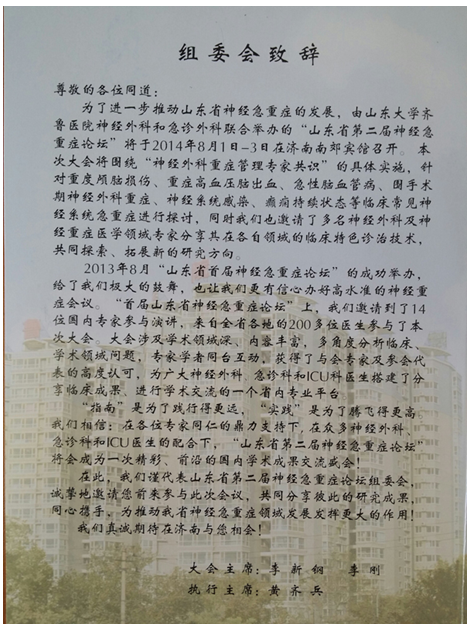 组委会致辞
尊敬的各位同道：
为了进一步推动山东省神经急重症的发展，由山东大学齐
鲁医院神经外科和急诊外科联合举办的“山东省第二届神经急
重症论坛”将于2014年8月1日-3日在济南南郊宾馆召开。本
次大会将围绕“神经外科重症管理专家共识”的具体实施，针
对重度颅脑损伤、重症高血压脑出血、急性脑血管病、围手术
期神经外科重症、神经系统感染、癫痫持续状态等临床常见神
经系统急重症进行探讨，同时我们也邀请了多名神经外科及神
经重症医学领域专家分享其在各自领域的临床特色诊治技术，
共同探索、拓展新的研究方向。
2013年8月“山东省首届神经急重症论坛”的成功举办，
给了我们极大的鼓舞，也让我们更有信心办好高水准的神经重
症会议。“首届山东省神经急重症论坛”上，我们邀请到了14
位国内专家参与演讲，来自全省各地的200多位医生参与了本
次大会。大会涉及学术领域深、内容丰富，多角度分析临床、
学术领域问题，专家学者同台互动，获得了与会专家及参会代
表的高度认可，为广大神经外科、急诊科和ICU科医生搭建了分
享临床成果、进行学术交流的一个省内专业平台。
“指南”是为了践行得更远，“实践”是为了腾飞得更高。
我们相信：在各位专家同仁的鼎力支持下，在众多神经外科、
急诊科和ICU医生的配合下，“山东省第二届神经急重症论坛”
将会成为一次精彩、前沿的国内学术成果交流盛会！
在此，我们谨代表山东省第二届神经急重症论坛组委会，
诚挚地邀请您前来参与此次会议，共同分享彼此的研究成果，
同心携手，为推动我省神经急重症领域发展发挥更大的作用！
我们真诚期待在济南与您相会！
大会主席：李新钢 李刚
执行主席：黄齐兵